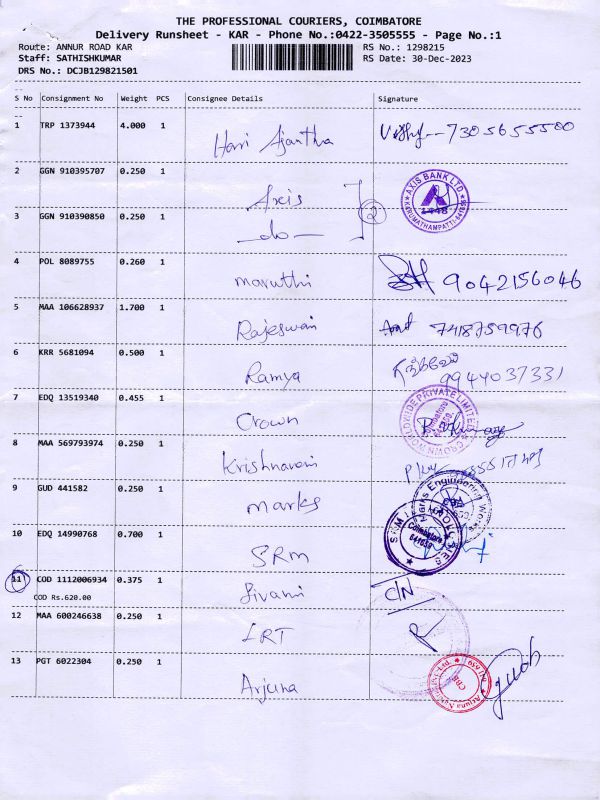 THE PROFESSIONAL COURIERS, COIMBATORE
Delivery Runsheet - KAR - Phone No.:0422-3505555 - Page No.:1
Route: ANNUR ROAD KAR RS No.: 1298215
Staff: SATHISHKUMAR RS Date: 30-Dec-2023
DRS No.: DCJB129821501
S No Consignment No Weight PCS Consignee Details Signature
1 TRP 1373944 4.000 1 Hari Ajantha 7305655500
2 GGN 910395707 0.250 1 Axis AXIS BANK LTD. KARUMATHAMPATTI-641659 1448
3 GGN 910390850 0.250 1 -do- 2
4 POL 8089755 0.260 1 maruthi 9042156046
5 MAA 106628937 1.700 1 Rajeswari 7418759976
6 KRR 5681094 0.500 1 Ramya 9944037331
7 EDQ 13519340 0.455 1 Crown CROWN WORLDWIDE PRIVATE LIMITED Coimbatore
8 MAA 569793974 0.250 1 Krishnaveni
9 GUD 441582 0.250 1 marks Marks Engineering Works
10 EDQ 14990768 0.700 1 SRM Coimbatore
11 COD 1112006934 0.375 1 C/N
COD Rs.620.00
12 MAA 600246638 0.250 1 LRT R
13 PGT 6022304 0.250 1 Arjuna CBE